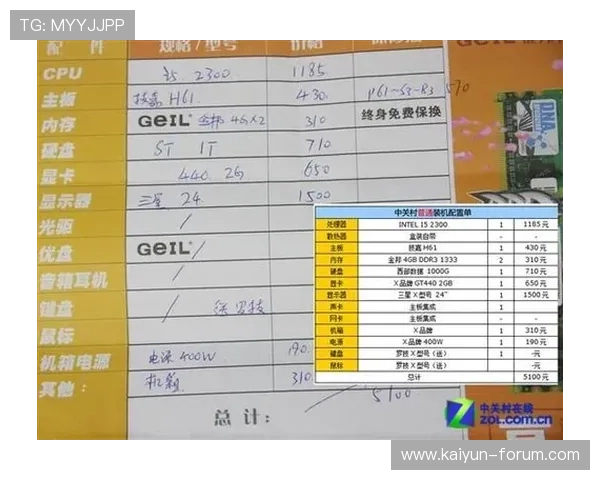 TG: MYYJJPP
配 件 规格/型号 价格
CPU i5 2300 1185
主板 技嘉 H61 430 H61-S3-B3 570
内存 GeIL 金邦 4G×2 310 终身免费保换
硬盘 ST 1T 710
显卡 440 2G 650
显示器 三星 24 1500
光驱 /
优盘 GeIL
音箱耳机 /
键盘 / 送 罗技
鼠标
机箱电源 电源 400W 190
其他: 机箱 310
总 计: 5100
GEIL
DNA
中关村普通装机配置单
处理器 INTEL I5 2300 1 1185 元
散热器 盒装自带
主板 技嘉 H61 1 430 元
内存 金邦 4GB DDR3 1333 2 310 元
硬盘 西部数据 1000G 1 710 元
显卡 X品牌 GT440 2GB 1 650 元
显示器 三星 X型号 24" 1 1500 元
声卡 主板集成 1
网卡 主板集成
机箱 X品牌 1 310 元
电源 X品牌 400W 1 190 元
键盘 罗技 X型号 (送) 1 -元
鼠标 罗技 X型号 (送) -元
总计 5100 元
中关村在线
ZOL.COM.CN
www.kaiyun-forum.com